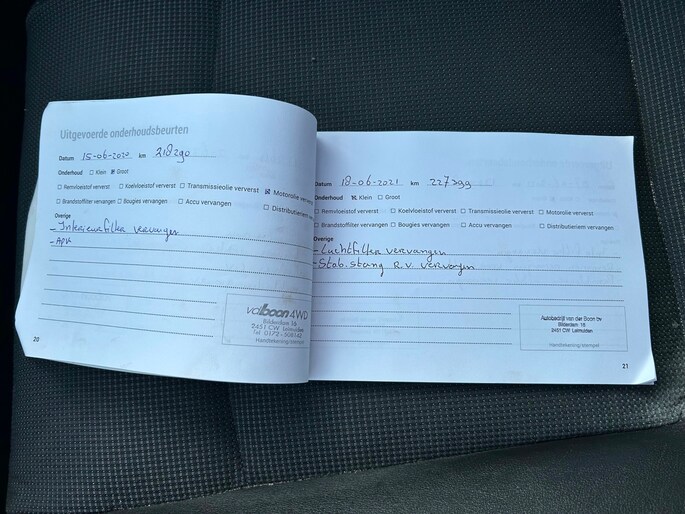 Uitgevoerde onderhoudsbeurten
Datum 15-06-2020 km 218290
Onderhoud ☐ Klein ☒ Groot
☐ Remvloeistof ververst ☐ Koelvloeistof ververst ☐ Transmissieolie ververst ☒ Motorolie ververst
☐ Brandstoffilter vervangen ☐ Bougies vervangen ☐ Accu vervangen ☐ Distributieriem ve
Overige
- Interieurfilter vervangen
- APK
vdboon 4WD
Bilderdam 16
2451 CW Leimuiden
Tel. 0172-508143
Handtekening/stempel
20
Datum 18-06-2021 km 227399
Onderhoud ☒ Klein ☐ Groot
☐ Remvloeistof ververst ☐ Koelvloeistof ververst ☐ Transmissieolie ververst ☐ Motorolie ververst
☐ Brandstoffilter vervangen ☐ Bougies vervangen ☐ Accu vervangen ☐ Distributieriem vervangen
Overige
- Luchtfilter vervangen
- Stab.stang R.V. vervangen
Autobedrijf van der Boon bv
Bilderdam 16
2451 CW Leimuiden
Handtekening/stempel
21